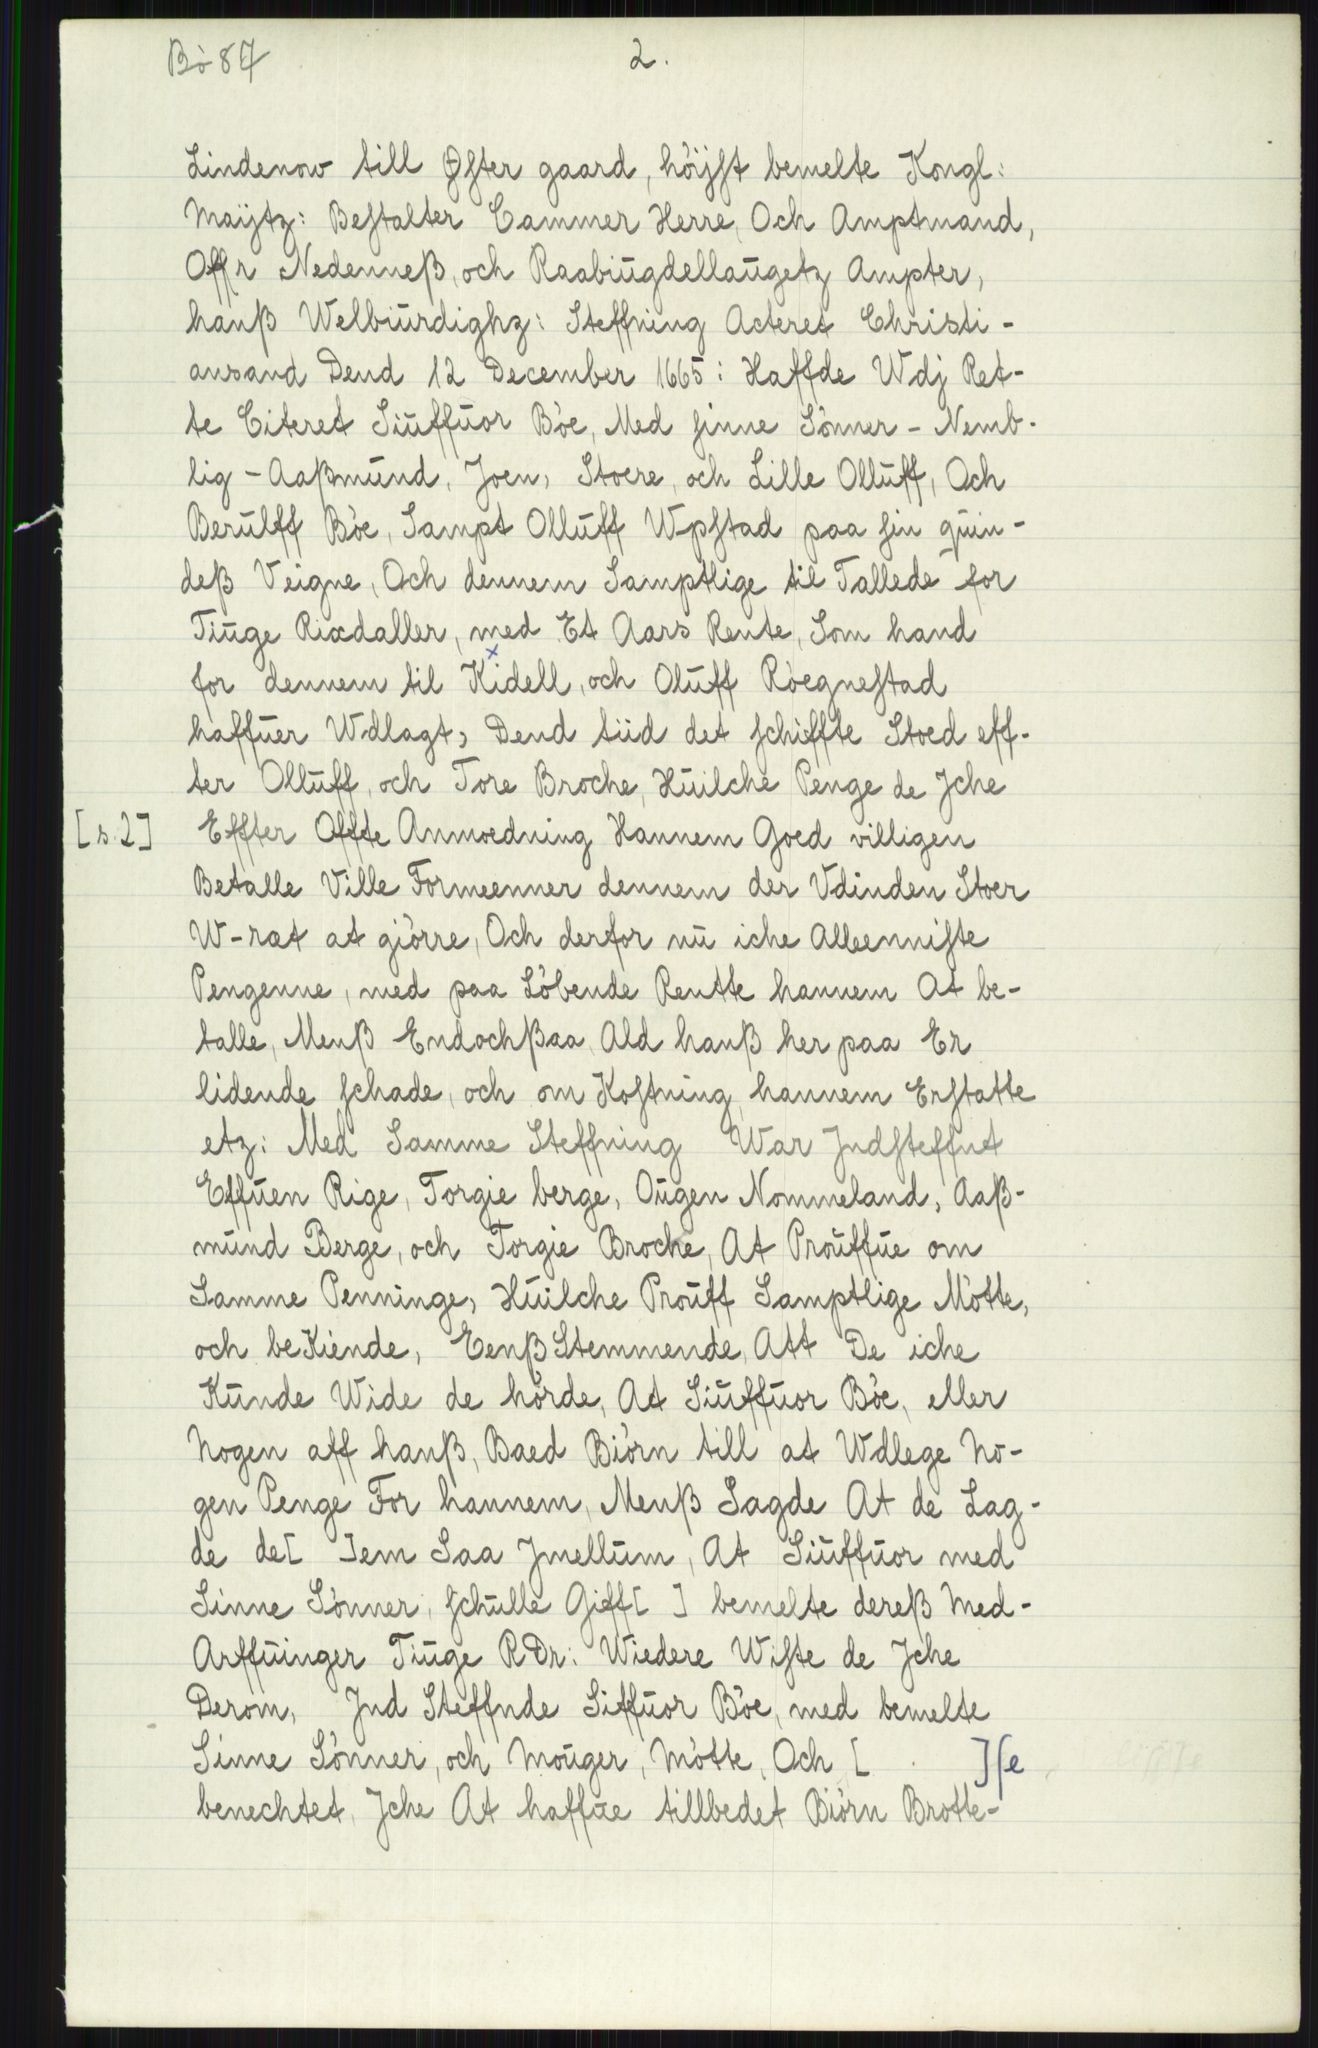 Bö 87
2.
Lindenow till Øster gaard, höijst bemelte Kongl:
Maijtz: Bestalter Cammer Herre, Och Amptmand,
Offr Nedenneß, och Raabiugdellaugetz Ampter,
hanß Welbiurdighz: Steffning Acteret Christi-
ansand Dend 12 December 1665: Haffde Wdj Ret-
te Citeret Siuffuor Böe, Med sinne Sönner - Nemb-
lig - Aaßmund, Joen, Stoere, och Lille Olluff, Och
Berulff Böe, Sampt Olluff Wpstad paa sin quin-
deß Veigne, Och dennem Samptlige til Tallede for
Tiuge Rixdaller, med Et Aars Rente, Som hand
for dennem til Kidell, och Oluff Röegnestad
haffuer Wdlagt, Dend tiid det schiffte Stoed eff-
ter Olluff, och Tore Broche, Huilche Penge de Jche
[s. 2] Effter Offte Anmoedning Hannem Goed villigen
Betalle Ville Formeenner dennem der Vdinden Stoer
W-ræt at giörre, Och derfor nu iche Alleenniste
Pengenne, med paa Löbende Rentte hannem At be-
talle, Menß Endochßaa Ald hanß her paa Er
lidende schade, och om Kostning hannem Erstatte
etz: Med Samme Steffning War Jndsteffnt
Effuen Rige, Torgie berge, Ougen Nommeland, Aaß-
mund Berge, och Torgie Broche, At Prouffue om
Samme Penninge, Huilche Prouff Samptlige Mötte,
och beKiende, EenßStemmende, Att De iche
Kunde Wide de hörde, At Siuffuor Böe, eller
Nogen aff hanß, Baed Biörn till at Wdlege No-
gen Penge For hannem, Menß Sagde At de Lag-
de de[ ]em Saa Jmellum, At Siuffuor med
Sinne Sönner, schulle Giff[ ] bemelte dereß Med-
Arffuinger Tiuge RDr: Wiedere Wiste de Jche
Derom, Jnd Steffnde Siffuor Böe, med bemelte
Sinne Sönner, och Mouger, Mötte, Och [ ]se
benechtet, Jche At haffue tillbedet Biörn Brotte-